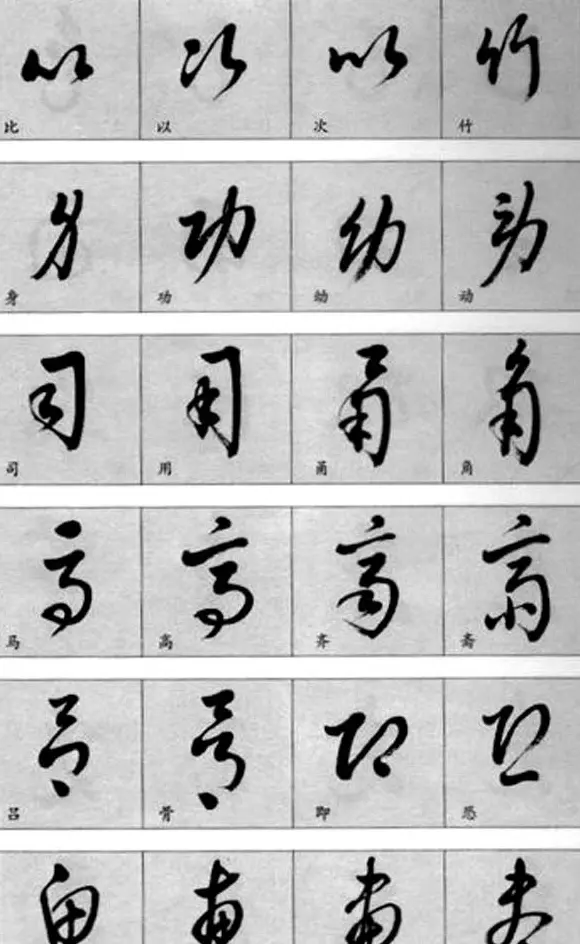 比 以 次 竹
身 功 幼 动
司 用 甬 角
马 高 齐 斋
吕 骨 即 恐